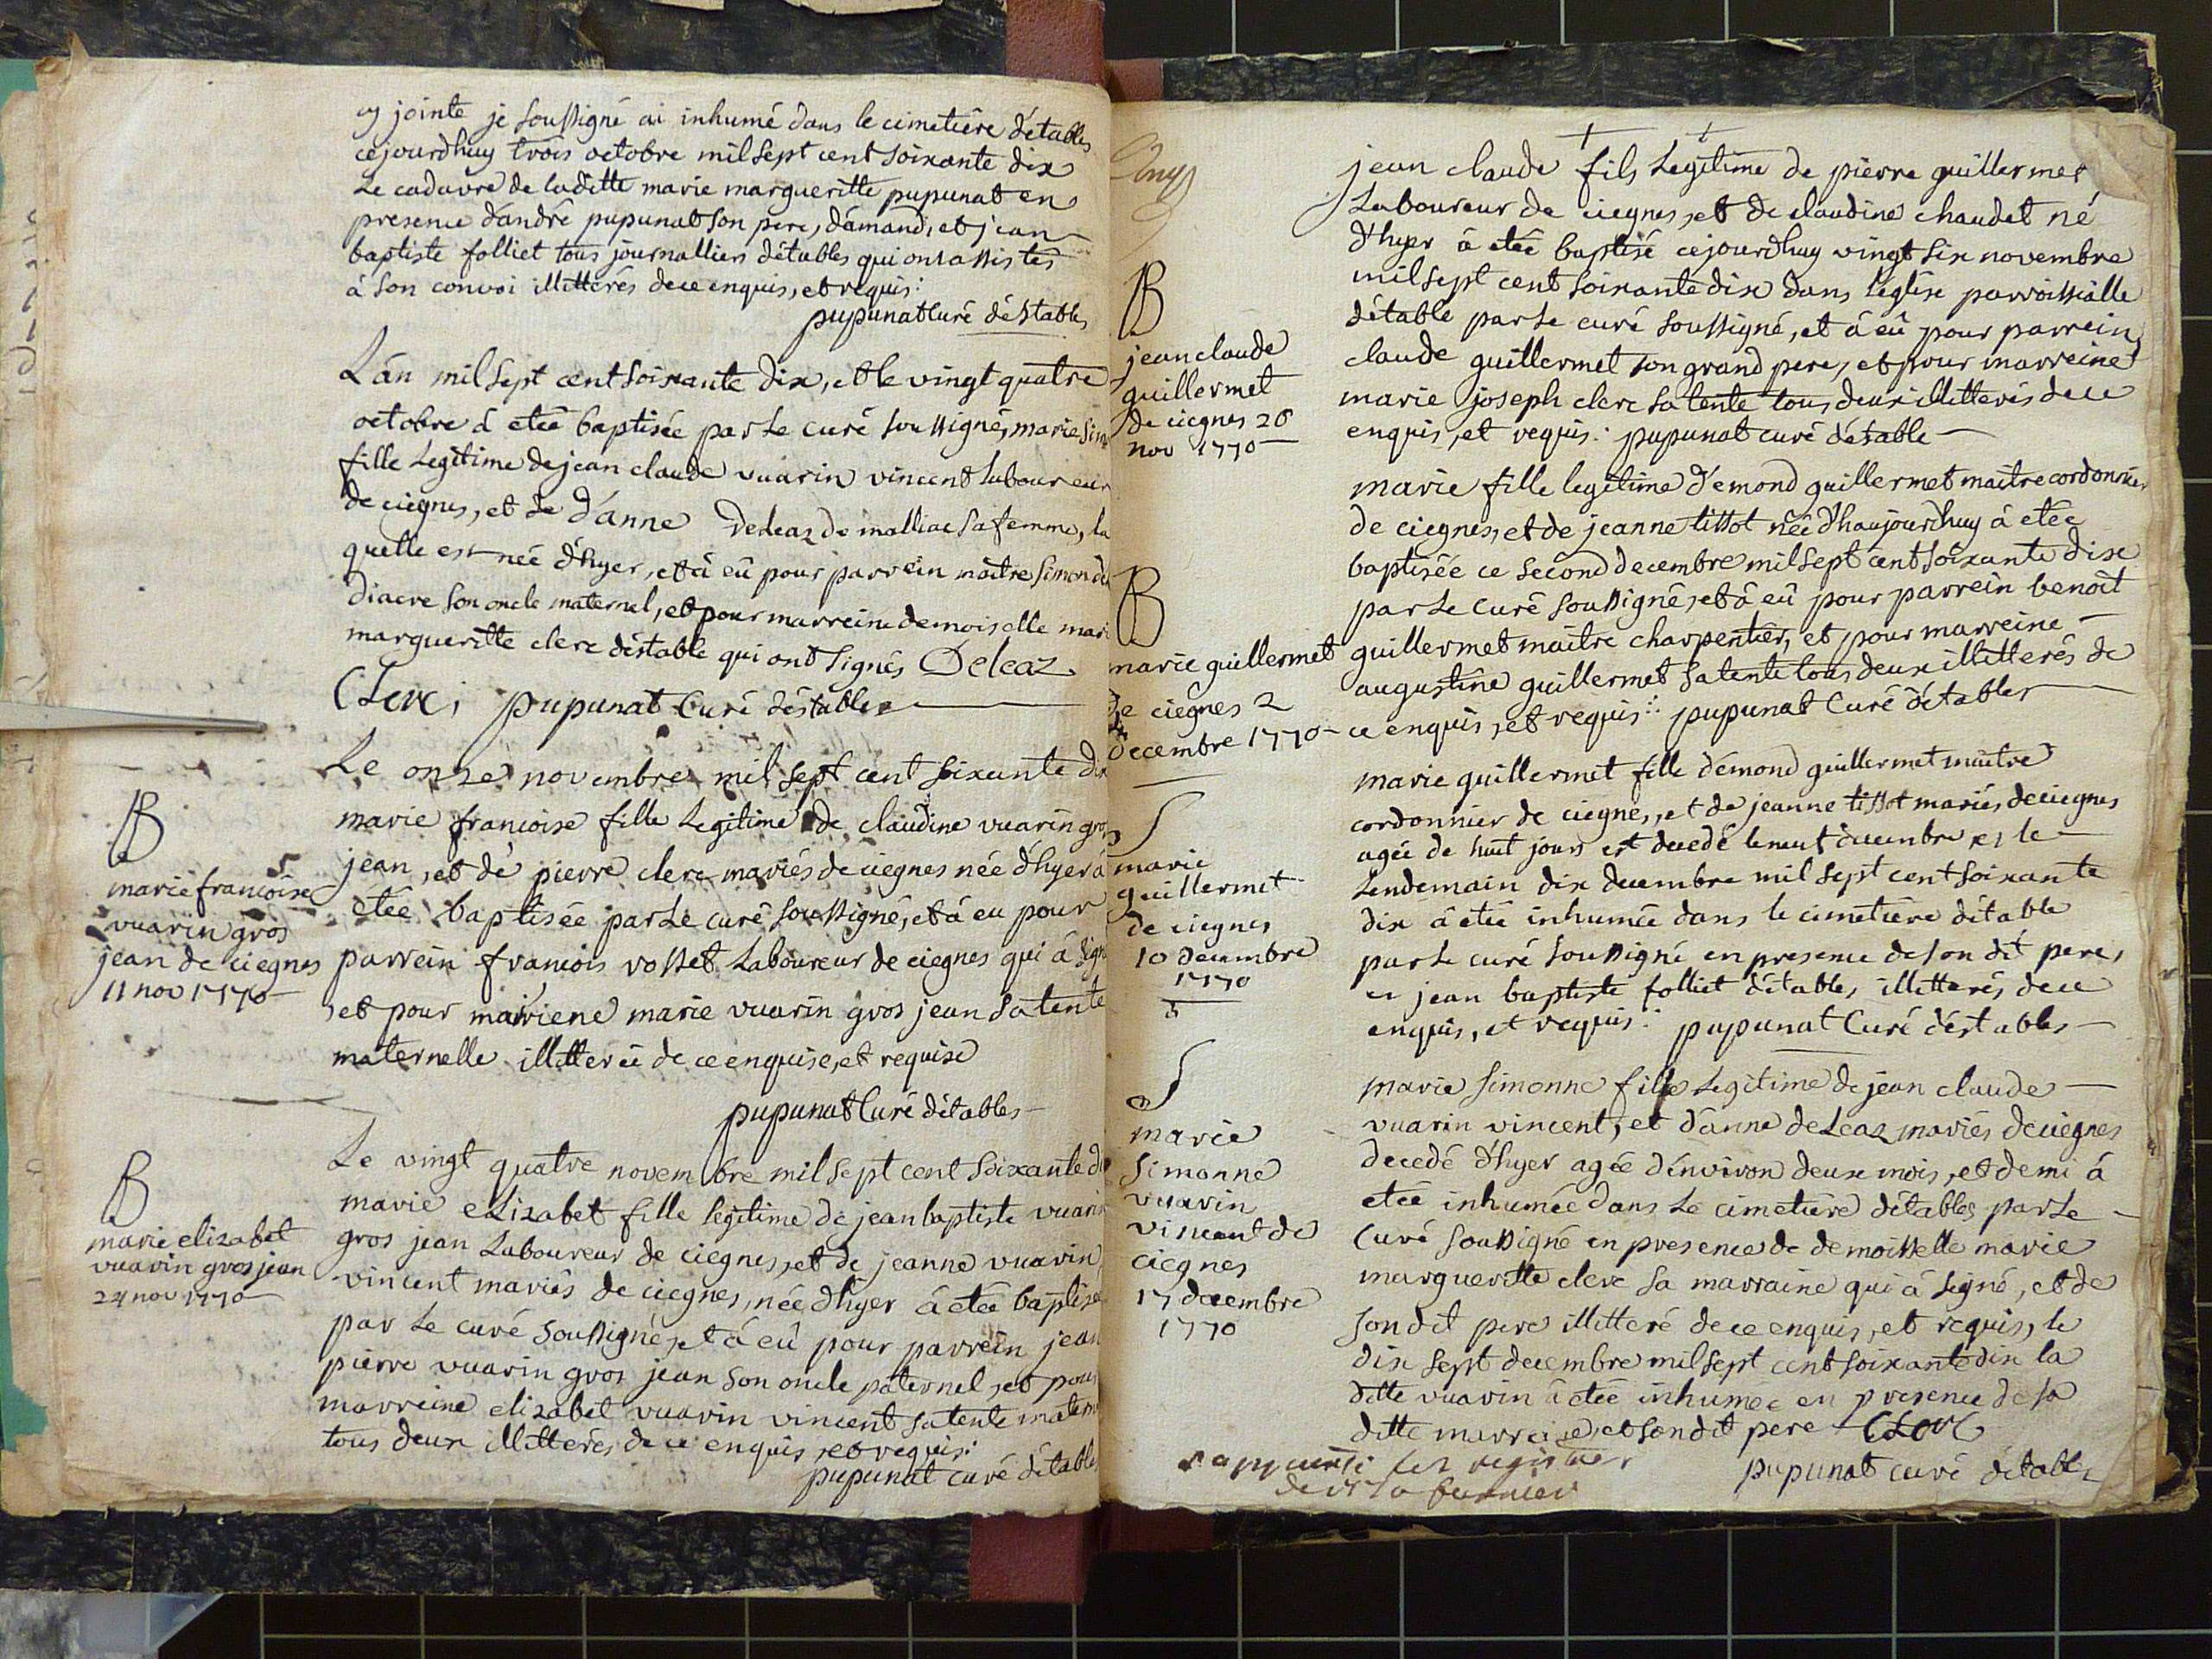 cy jointe je soussigné ai inhumé dans le cimetiêre d'étables
cejourdhuy trois octobre mil sept cent soixante dix
Le cadavre de laditte marie margueritte pupunat en
presence d'andré pupunat son pere, d'amand, et jean
baptiste folliet tous journalliers d'étables qui ont assistés
à son convoi illitterés de ce enquis, et requis:
pupunat Curé déstables
L'an mil sept cent soixante dix, et le vingt quatre
octobre á etée baptisée par le curé soussigné, marie
fille Legitime de jean claude vuarin vincent laboureur
de ciegnes, et de d'anne Deleaz de malliac sa femme, la
quelle est née d'hyer, et á eû pour parrein maitre simon
diacre son oncle maternel, et pour marreine demoiselle mari
margueritte clerc déstable qui ont signés Deleaz
Clerc, pupunat Curé déstables
Le onze novembre mil sept cent soixante dix
marie francoise fille Legitime de claudine vuarin gros
jean, et dè pierre clerc mariés de ciegnes née d'hyer á
etée baptisée par Le curé soussigné, et á eu pour
parrein francois rosset Laboureur de ciegnes qui á signé
et pour marriene marie vuarin gros jean sa tente
maternelle illitterée de ce enquise, et requise
pupunat Curé d'étables
Le vingt quatre novembre mil sept cent soixante
marie elizabet fille legitime de jean baptiste vuarin
gros jean Laboureur de ciegnes, et de jeanne vuarin
vincent mariés de ciegnes, née d'hyer á etée baptisée
par Le curé soussigné, et á eû pour parrein jean
pierre vuarin gros jean son oncle paternel, et pour
marreine elizabet vuarin vincent sa tente matern
tous deux illitterés, de ce enquis, et requis:
pupunat curé d'étables
B
marie francoise
vuarin gros
jean de ciegnes
11 nov 1770
B
marie elizabet
vuarin gros jean
24 nov 1770
jean claude fils Legitime de pierre guillermet
Laboureur de ciegnes, et de claudine chaudet né
d'hyer á etée baptisé cejourdhuy vingt six novembre
mil sept cent soixante dix dans l'eglise parroissialle
d'étable par Le curé soussigné, et á eû pour parrein
claude guillermet son grand pere, et pour marreine
marie joseph clerc sa tente tous deux illitterés de ce
enquis, et requis: pupunat curé d'étable
B
jean claude
guillermet
de ciegnes 26
nov 1770
marie fille legitime d'emond guillermet maitre cordonnier
de ciegnes, et de jeanne tissot néé d'haujourdhuy á etée
baptisée ce second decembre mil sept cent soixante dix
par Le curé soussigné, et á eû pour parrein benoît
guillermet maitre charpentier, et pour marreine
augustine guillermet sa tente tous deux illitterés de
ce enquis, et requis: pupunat Curé d'étables
B
marie guillermet
de ciegnes 2
decembre 1770
marie guillermet fille d'émond guillermet maitre
cordonnier de ciegnes, et de jeanne tissot mariés, de ciegnes
agée de huit jours est decedé le neuf decembre et le
Lendemain dix decembre mil sept cent soixante
dix á etée inhumée dans le cimetiere d'étable
par Le curé soussigné en presence de son dit pere,
et jean baptiste folliet d'étables, illitterés, de ce
enquis, et requis: pupunat Curé déstables
S
marie
guillermet
de ciegnes
10 decembre
1770
marie simonne fille Legitime de jean claude
vuarin vincent, et d'anne deLeaz mariés de ciegnes
decedé d'hyer agée d'environ deux mois, et demi á
etée inhumée dans Le cimetiere d'étables par Le
Curé soussigné en presence de demoisselle marie
margueritte clerc sa marraine qui á signé, et de
son dit pere illitteré de ce enquis, et requis, le
dix sept decembre mil sept cent soixante dix la
ditte vuarin á etée inhumee en presence de sa
ditte marreine, et son dit pere Clerc
pupunat curé d'étable
S
marie
simonne
vuarin
vincent de
ciegnes
17 decembre
1770